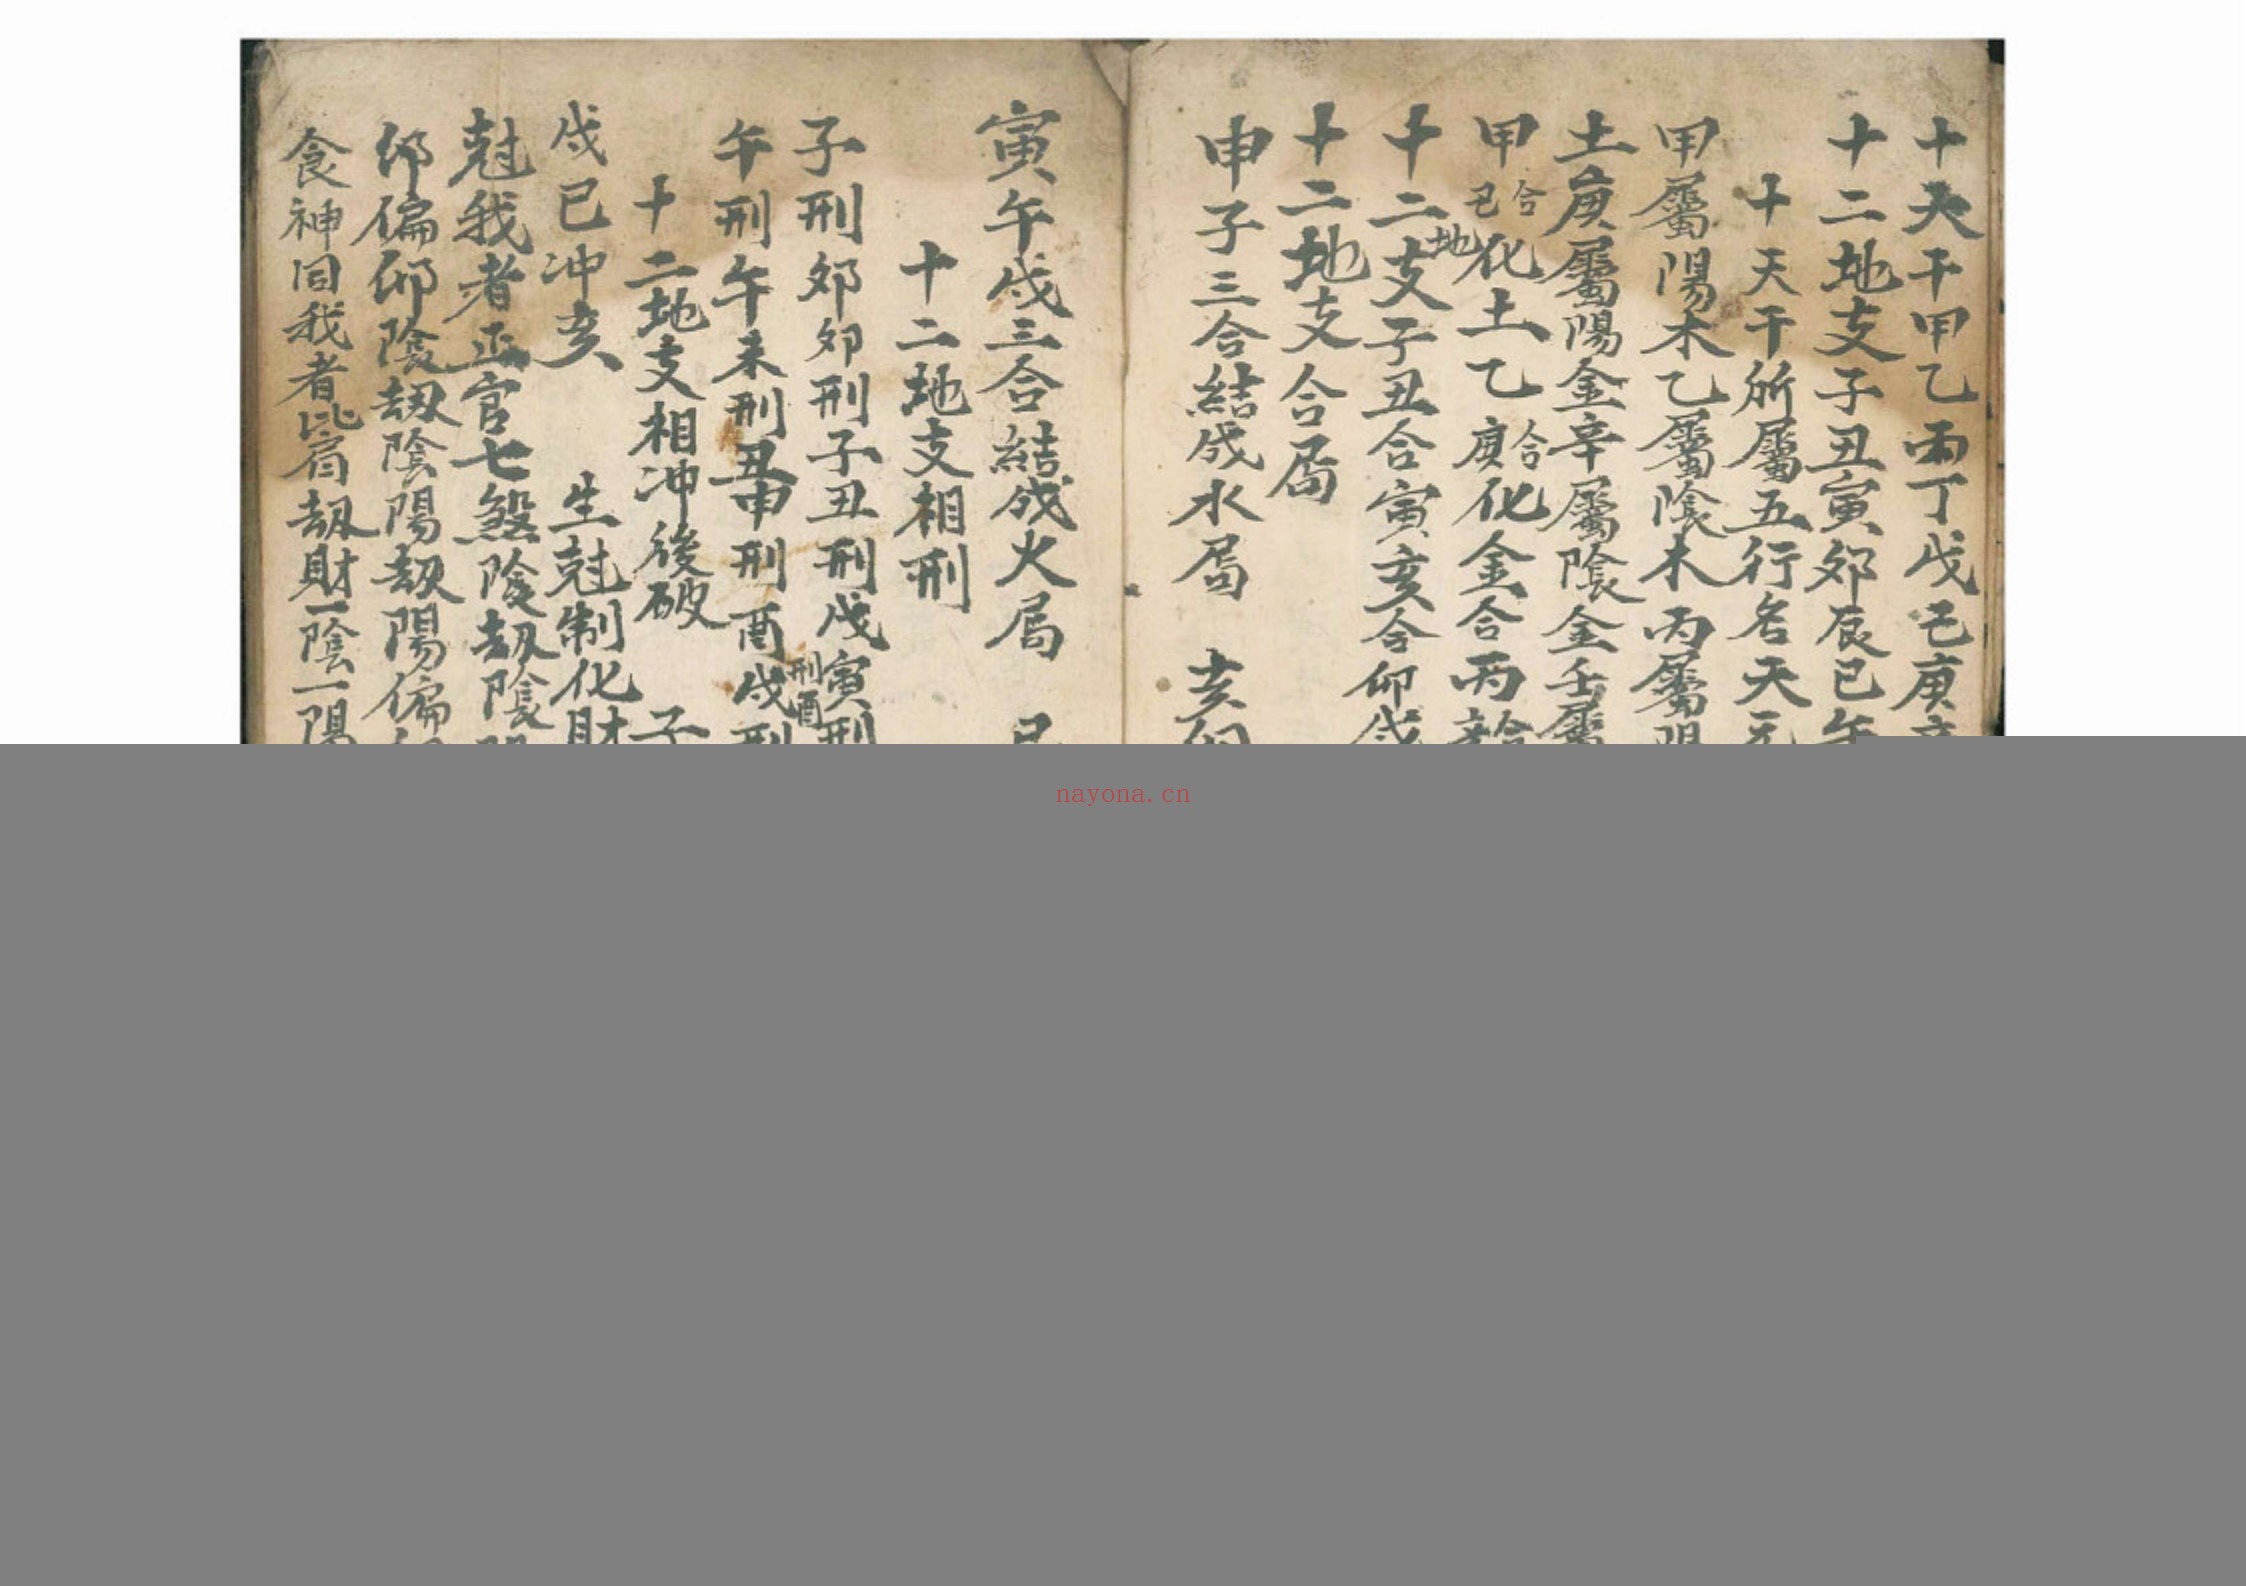 十天干甲乙丙丁戊己庚辛
十二地支子丑寅卯辰巳午
十天干所屬五行名天元
甲屬陽木乙屬陰木丙屬陽
土庚屬陽金辛屬陰金壬屬
甲己合化土乙庚合化金合丙辛合
十二地支子丑合寅亥合卯戌
十二地支合局
申子三合結成水局 亥卯
寅午戌三合結成火局 巳
十二地支相刑
子刑卯卯刑子丑刑戌寅刑
午刑午未刑丑申刑酉戌刑
刑酉
十二地支相冲後破 子
戌巳冲亥 生尅制化財
尅我者正官七煞陰刼陰陽
卯偏卯陰刼陰陽刼陽偏
食神同我者比肩刼財一陰一陽
nayona.cn